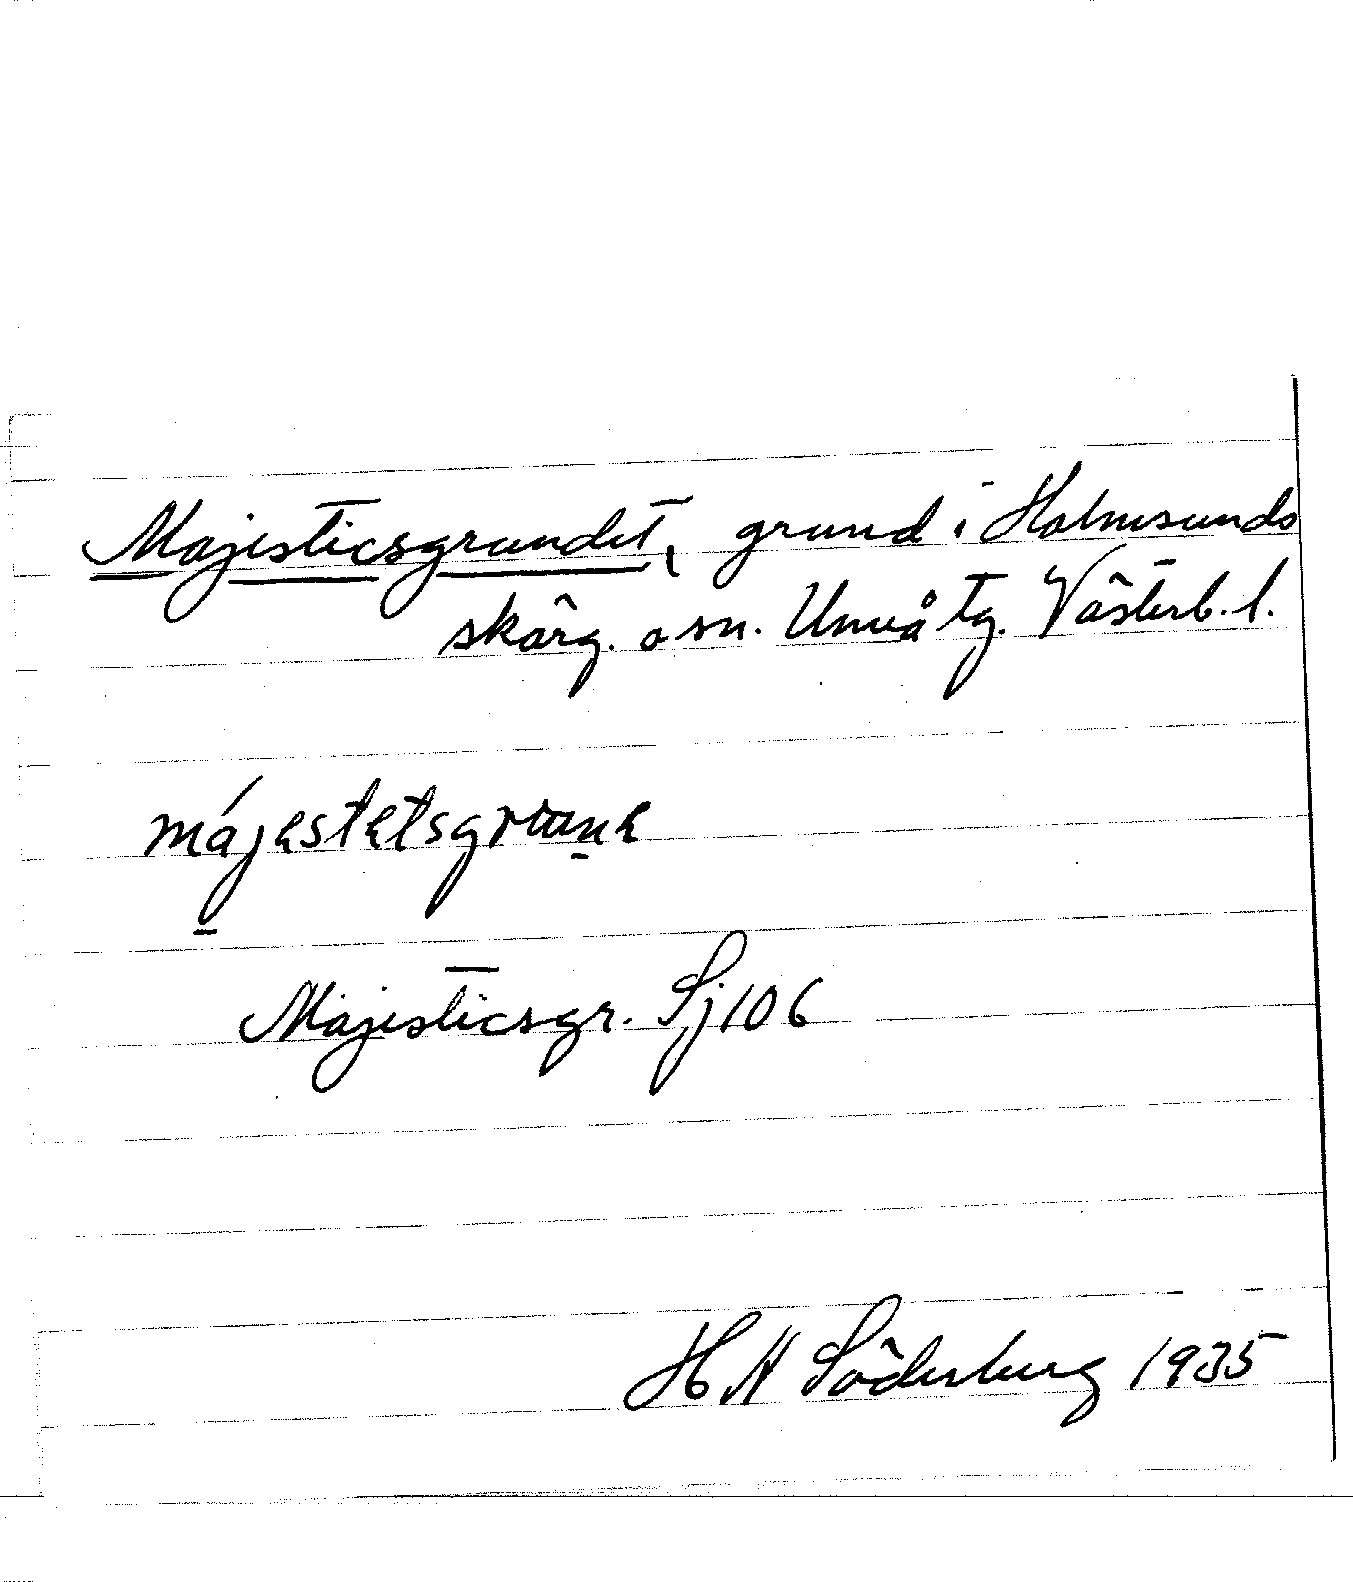 Majesticsgrundet, grund i Holmsunds
skärg. o sn. Umeå tg. Västerb. l.
májestetsgrune
Majesticsgr. Sj 106
H A Söderberg 1935